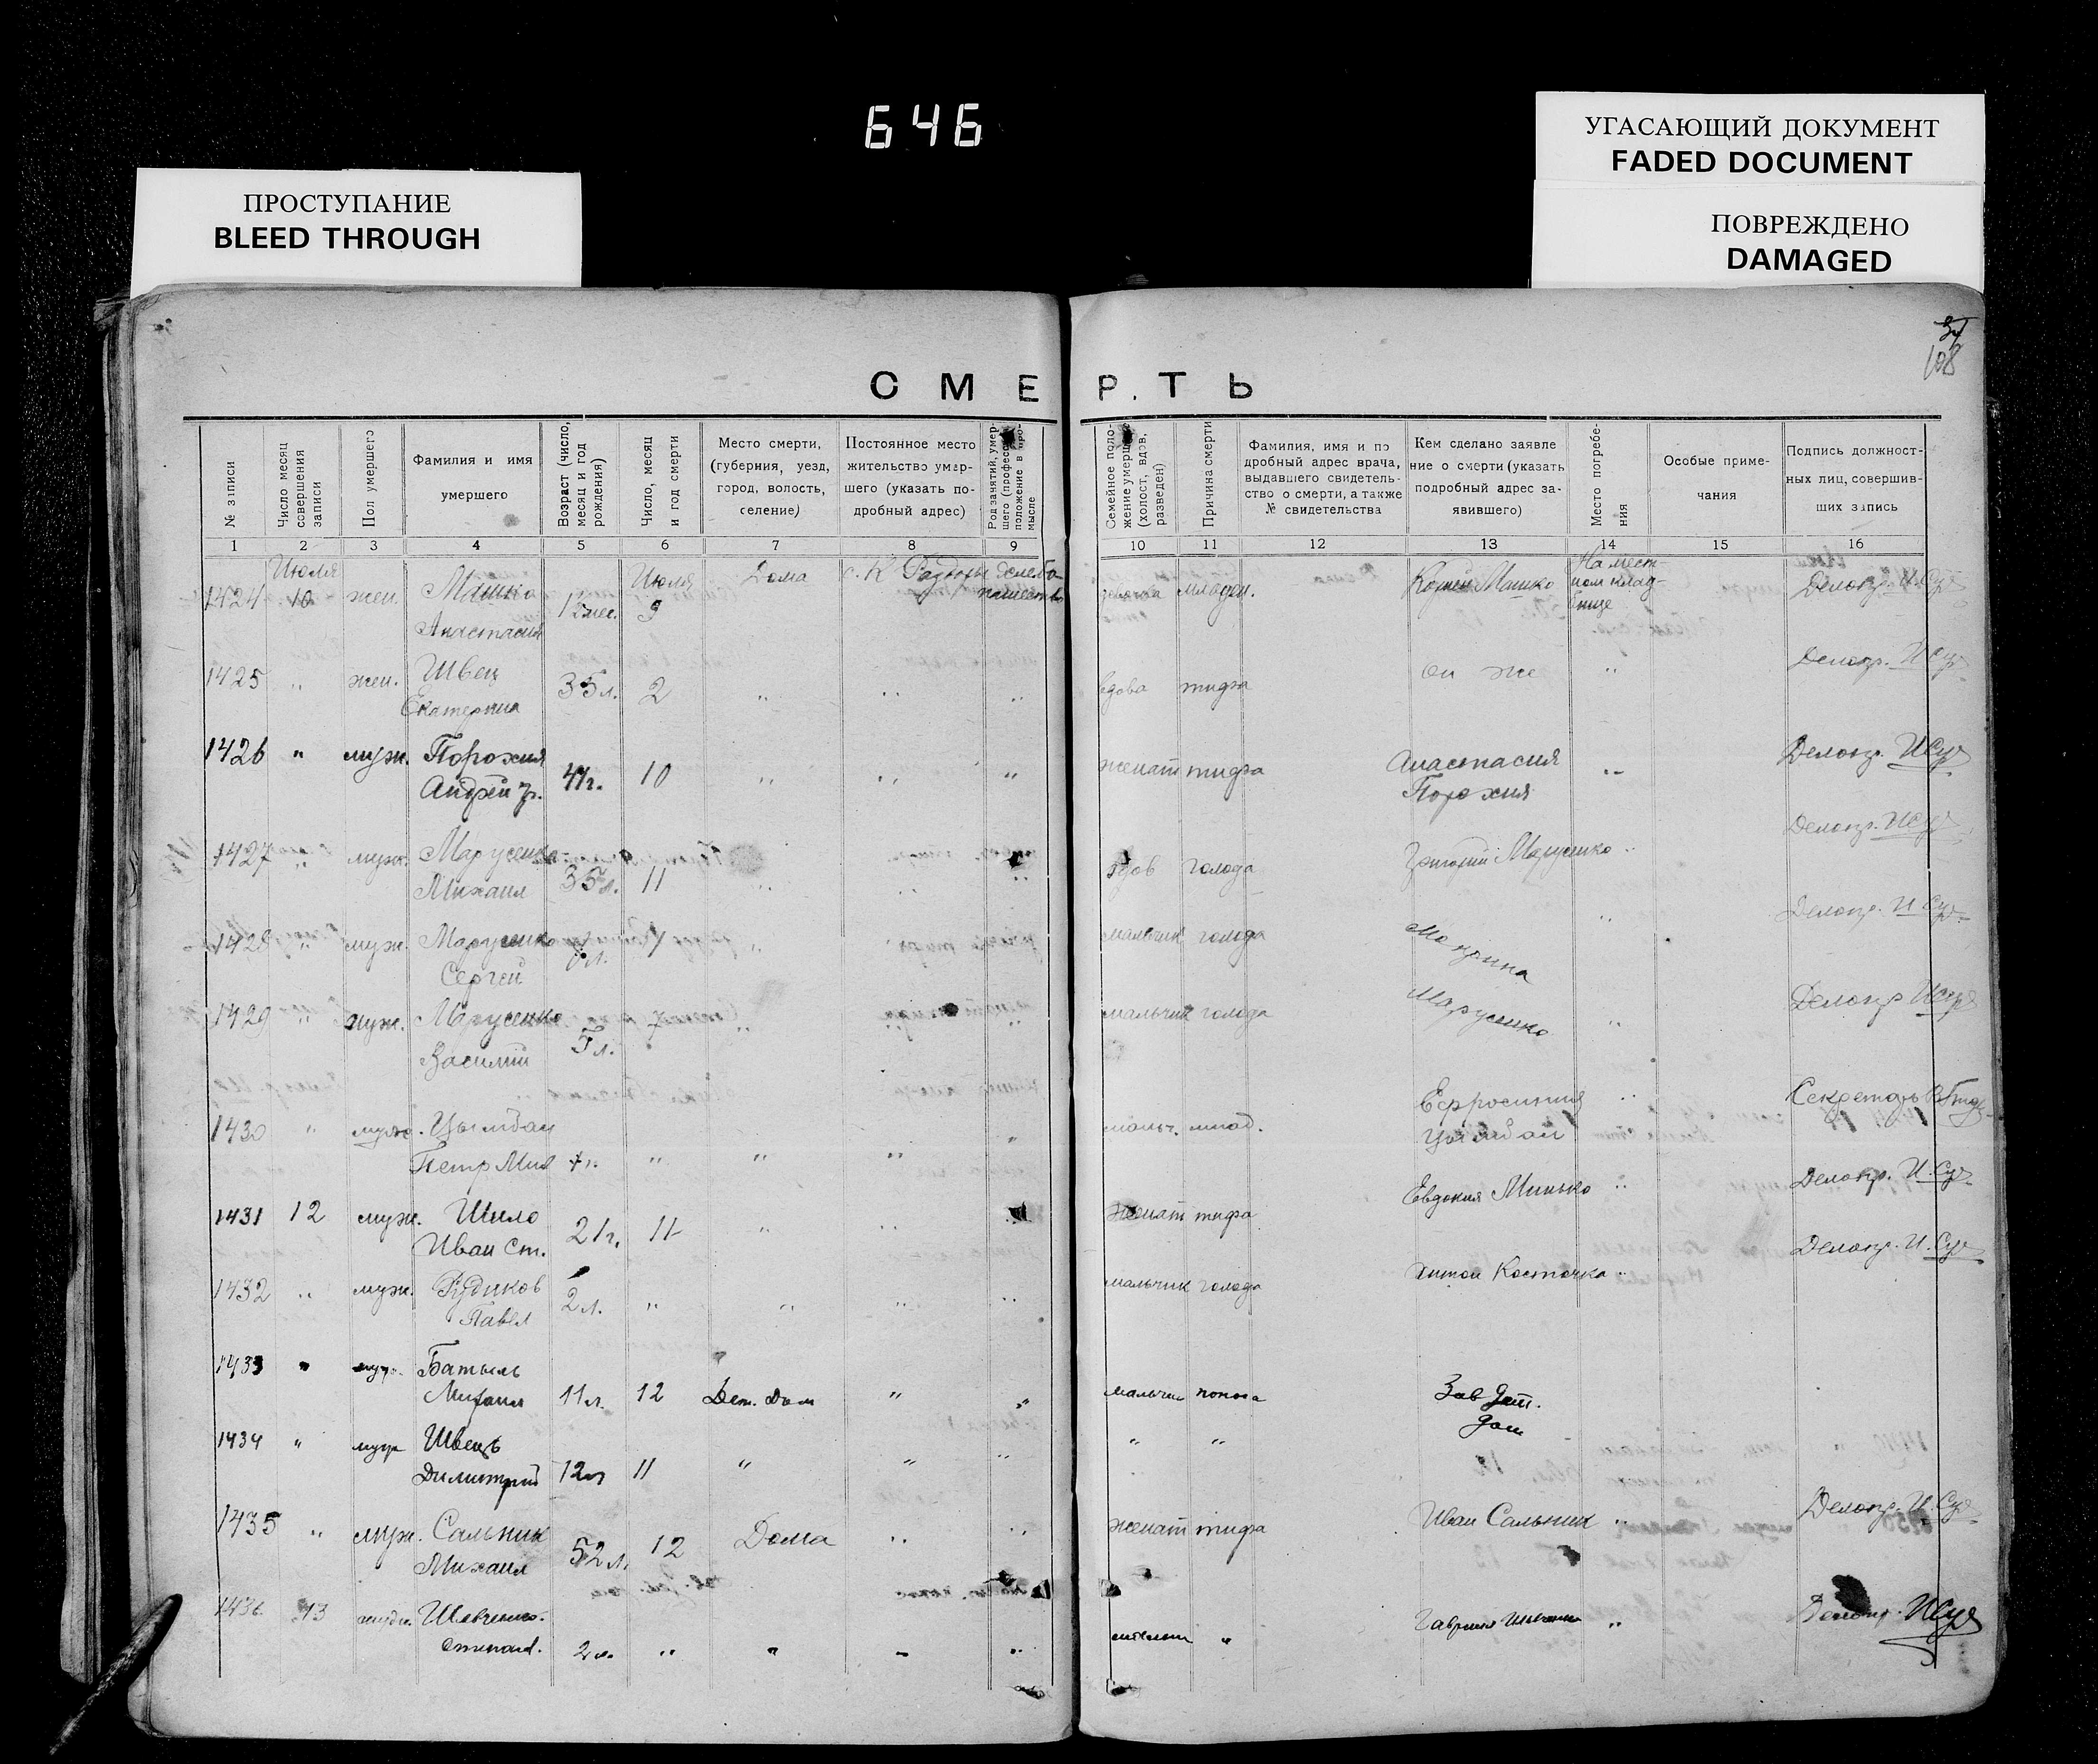 646
ПРОСТУПАНИЕ
BLEED THROUGH
УГАСАЮЩИЙ ДОКУМЕНТ
FADED DOCUMENT
ПОВРЕЖДЕНО
DAMAGED
108
СМЕРТЬ
№ записи
Число месяц совершения записи
Пол умершего
Фамилия и имя умершего
Возраст (число, месяц и год рождения)
Число, месяц и год смерти
Место смерти, (губерния, уезд, город, волость, селение)
Постоянное место жительство умершего (указать подробный адрес)
Род занятий, умершего (професс положение в промысле
Семейное положение умерше (холост, вдов, разведен)
Причина смерти
Фамилия, имя и подробный адрес врача, выдавшего свидетельство о смерти, а также № свидетельства
Кем сделано заявление о смерти (указать подробный адрес заявившего)
Место погребения
Особые примечания
Подпись должностных лиц, совершивших запись
1 2 3 4 5 6 7 8 9 10 11 12 13 14 15 16
1424 Июля 10 жен. Машко Анастасия Июля 9 Дома младен. Машко На мест- ном клад- бище Делопр.
1425 " жен. Швец Екатерина 35 л. 2 " " " вдова тифа он же " Делопр.
1426 " муж. Порохня Андрей 10 " " " женат тифа Анастасия Порохня " Делопр.
1427 " муж. Марусенко Михаил 35 л. 11 " " " вдов голода Григорий Марусенко " Делопр.
1428 " муж. Марусенко Сергей 7 " " мальчик голода Марусенко " Делопр.
1429 " муж. Марусенко Василий 5 л. 7 " " " мальчик голода " Делопр.
1430 " муж. Цымбал Петр " " " " мальч. млад. Ефросиния Цымбал " Секретарь
1431 12 муж. Шило Иван Ст. 21 г. 11 " " " женат тифа Евдокия Минько " Делопр.
1432 " муж. Павел 2 л. " " " " мальчик голода Антон Косточка " Делопр.
1433 " муж. Батыль Михаил 11 л. 12 Дет. Дом " " мальчик Зав дет. дом
1434 " муж Швець Димитрий 12 л 11 " " " " "
1435 " муж. Сальник Михаил 52 л. 12 Дома " " женат тифа Иван Сальник " Делопр.
1436 13 Шевченко 2 л. " " " " " Гавриил Шевченко " Делопр.